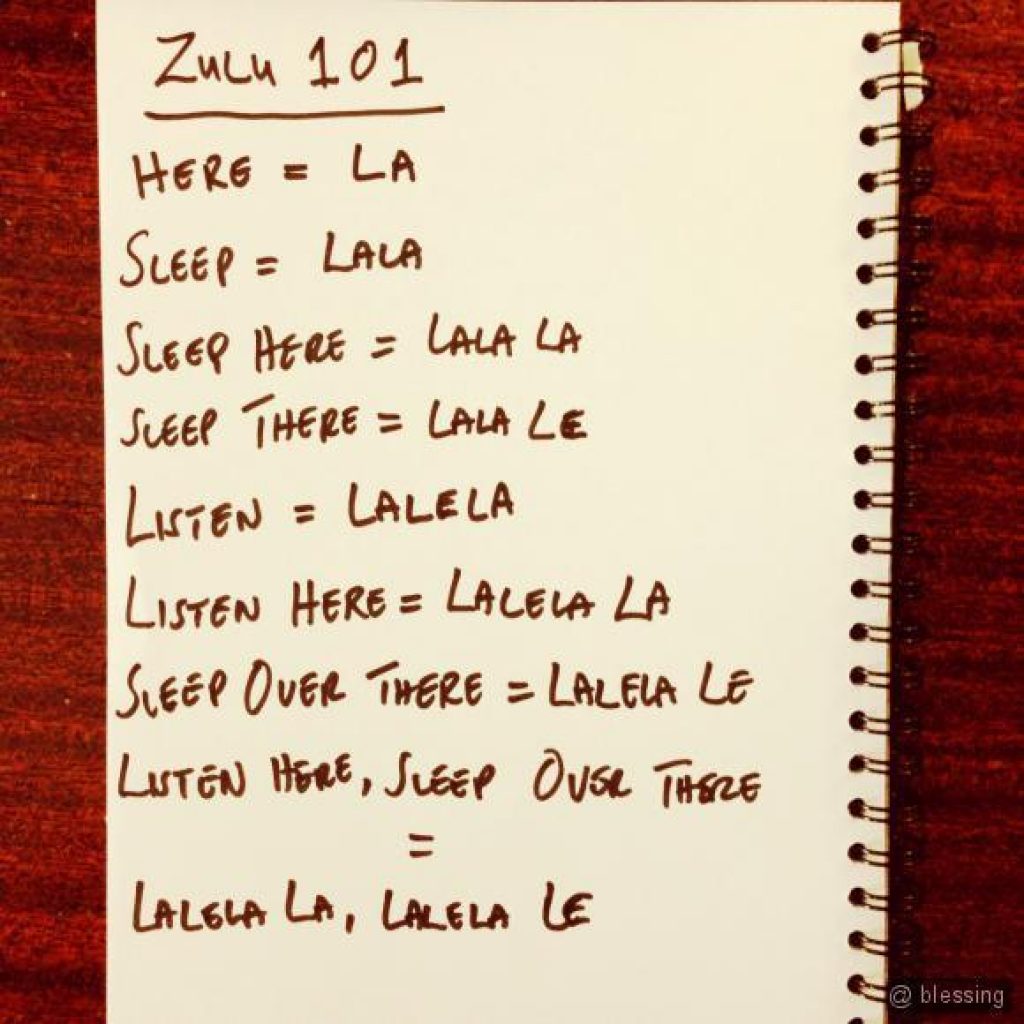 ZULU 101
HERE = LA
SLEEP = LALA
SLEEP HERE = LALA LA
SLEEP THERE = LALA LE
LISTEN = LALELA
LISTEN HERE = LALELA LA
SLEEP OVER THERE = LALELA LE
LISTEN HERE, SLEEP OVER THERE
=
LALELA LA, LALELA LE
@ blessing